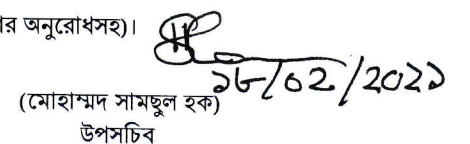 র অনুরোধসহ)।
১৮/০২/২০২১
(মোহাম্মদ সামছুল হক)
উপসচিব